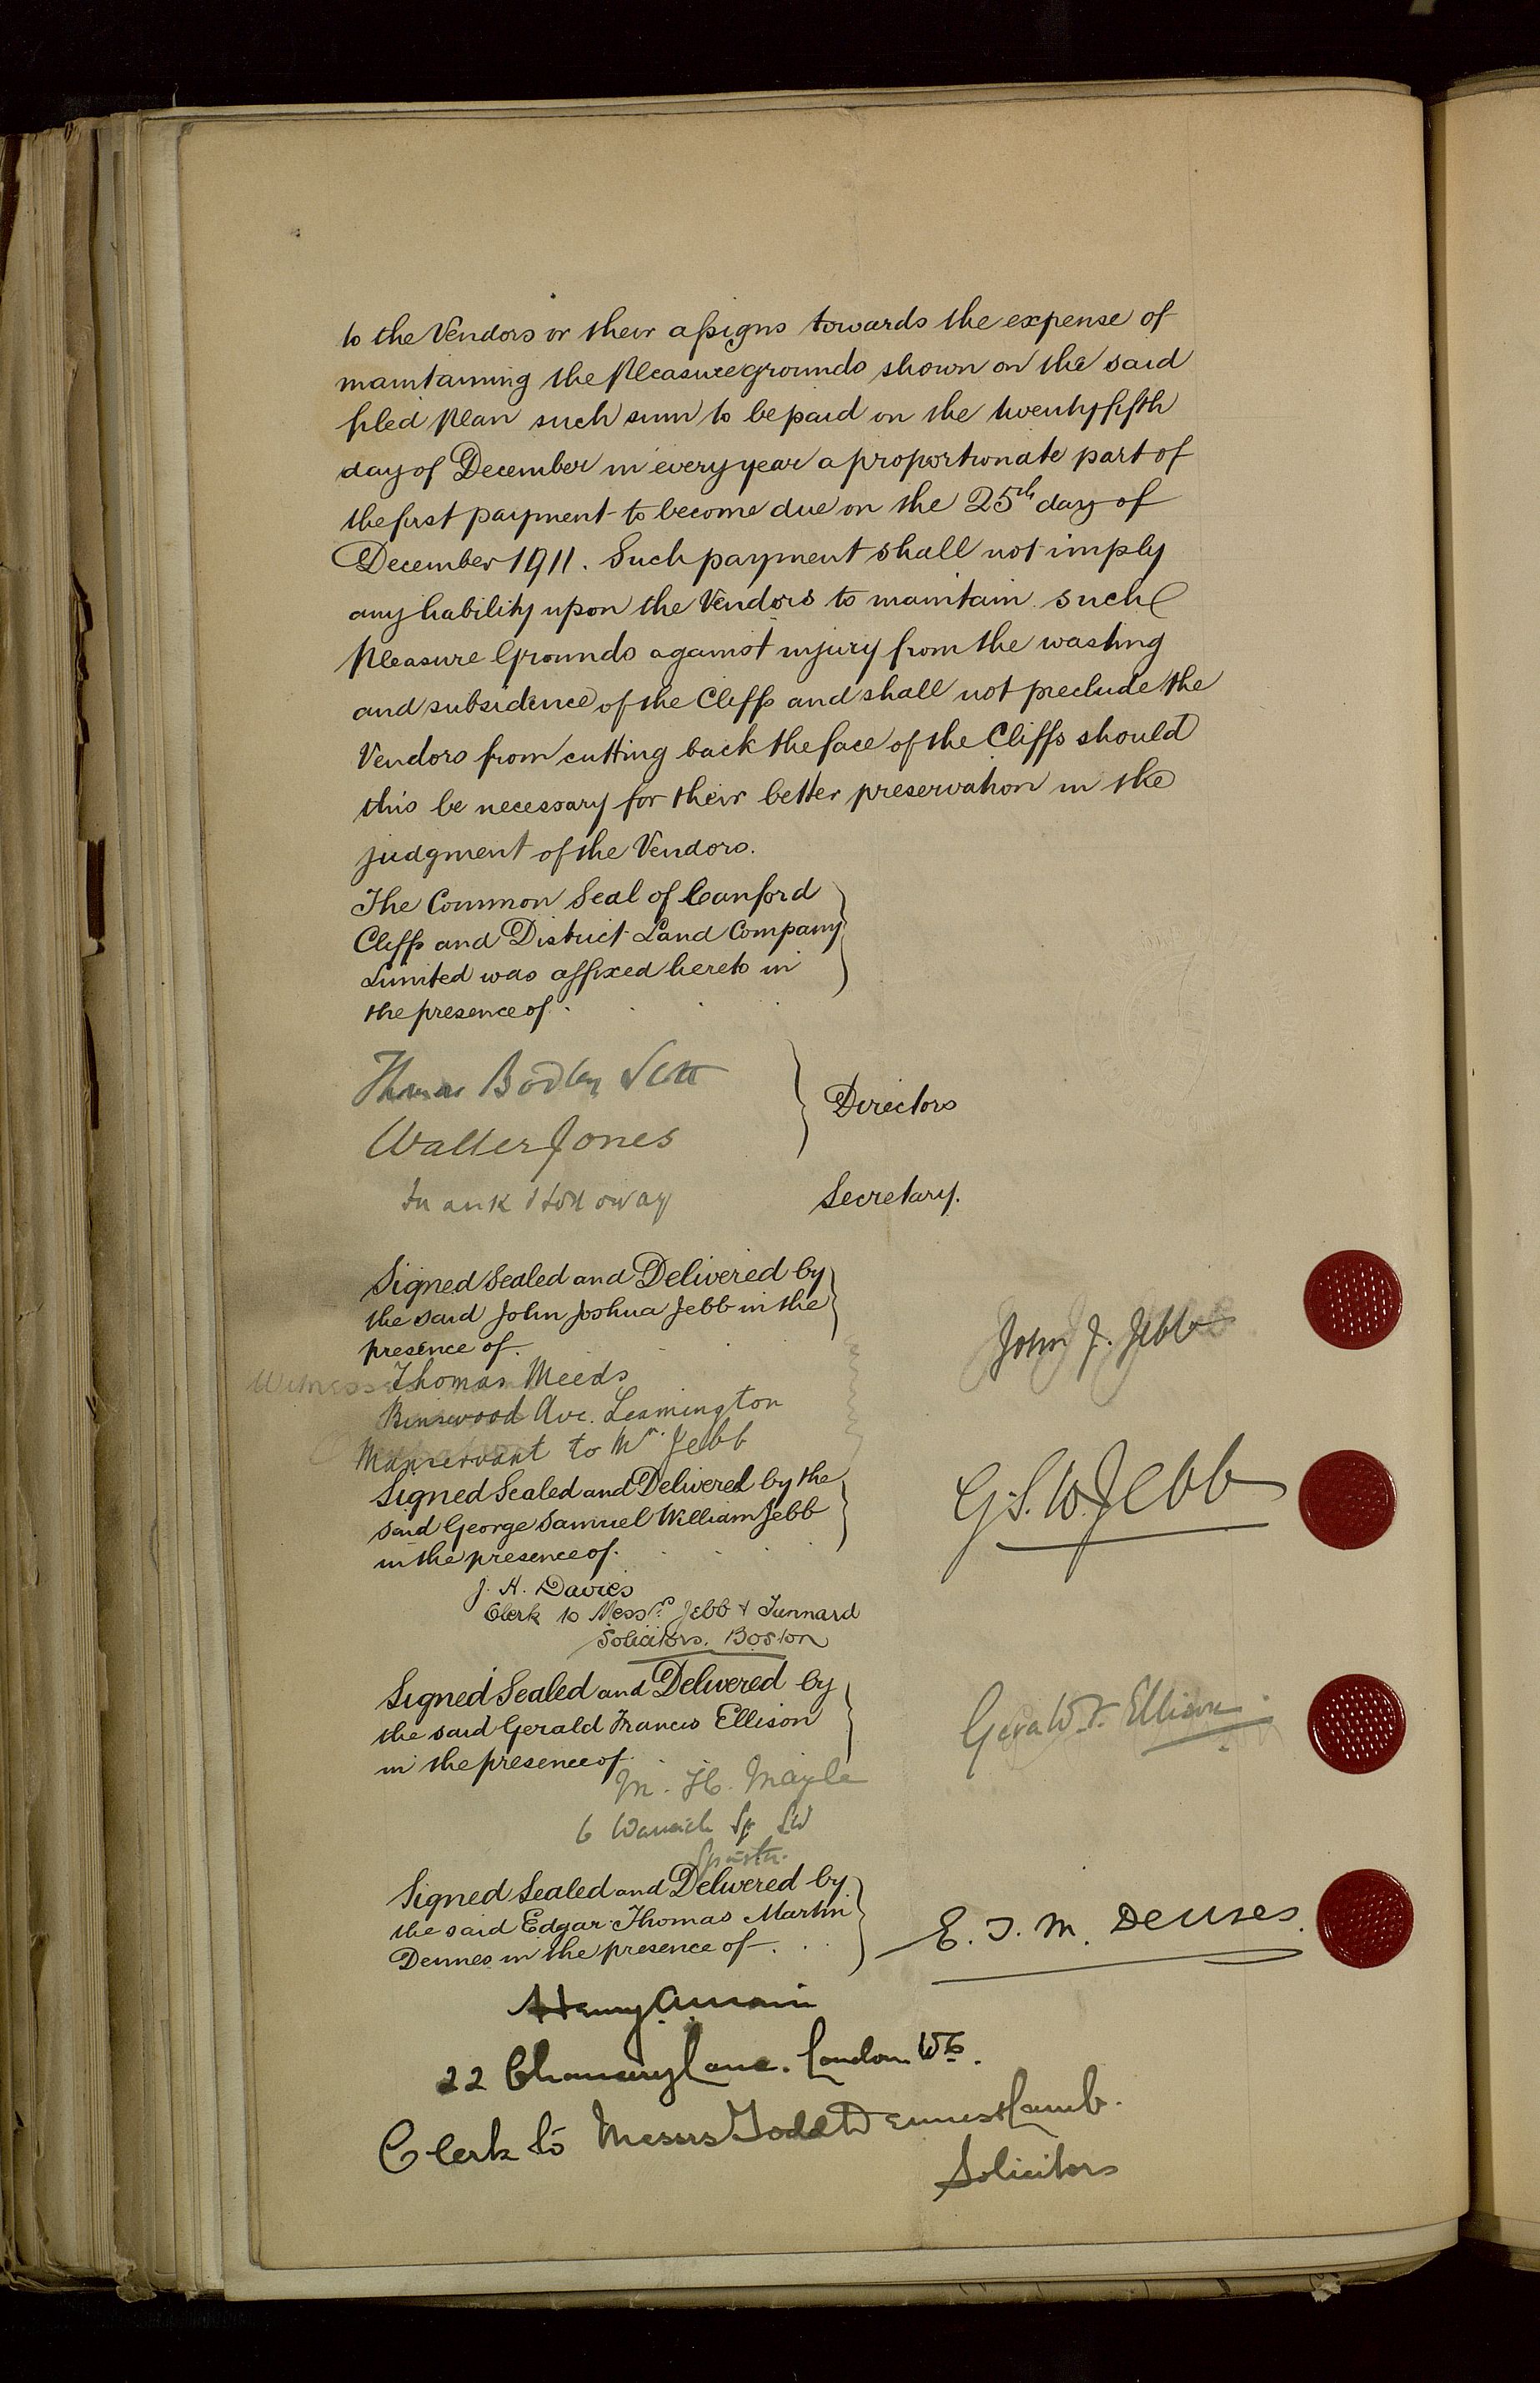 to the Vendors or their assigns towards the expense of
maintaining the Pleasure grounds shown on the said
filed plan such sum to be paid on the twenty fifth
day of December in every year a proportionate part of
the first payment to become due on the 25th day of
December 1911. Such payment shall not imply
any liability upon the Vendors to maintain such
Pleasure Grounds against injury from the wasting
and subsidence of the Cliffs and shall not preclude the
Vendors from cutting back the face of the Cliffs should
this be necessary for their better preservation in the
judgment of the Vendors.
The Common Seal of Canford
Cliffs and District Land Company
Limited was affixed hereto in
the presence of
Thomas Bodley Scott
Directors
Walter Jones
Frank Holloway
Secretary.
Signed Sealed and Delivered by
the said John Joshua Jebb in the
presence of
John J. Jebb
Witness Thomas Meeds
Binswood Ave. Leamington
Manservant to Mr. Jebb
Signed Sealed and Delivered by the
said George Samuel William Jebb
in the presence of
G. S. W. Jebb
J. H. Davies
Clerk to Messrs Jebb & Tunnard
Solicitors. Boston
Signed Sealed and Delivered by
the said Gerald Francis Ellison
in the presence of
Gerald F. Ellison
M. H.
6 Warwick Sq SW
Spinster.
Signed Sealed and Delivered by
the said Edgar Thomas Martin
Dennes in the presence of
E. T. M. Dennes.
Henry
22 Chancery Lane. London WC.
Clerk to Messrs Todd Dennes & Lamb.
Solicitors